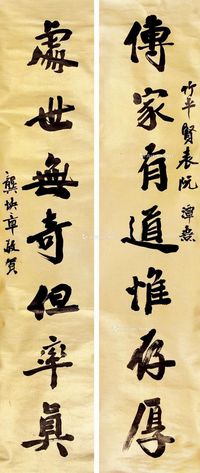 傳家有道惟存厚
竹平賢表阮 譚熹
處世無奇但率真
龔 章敬賀